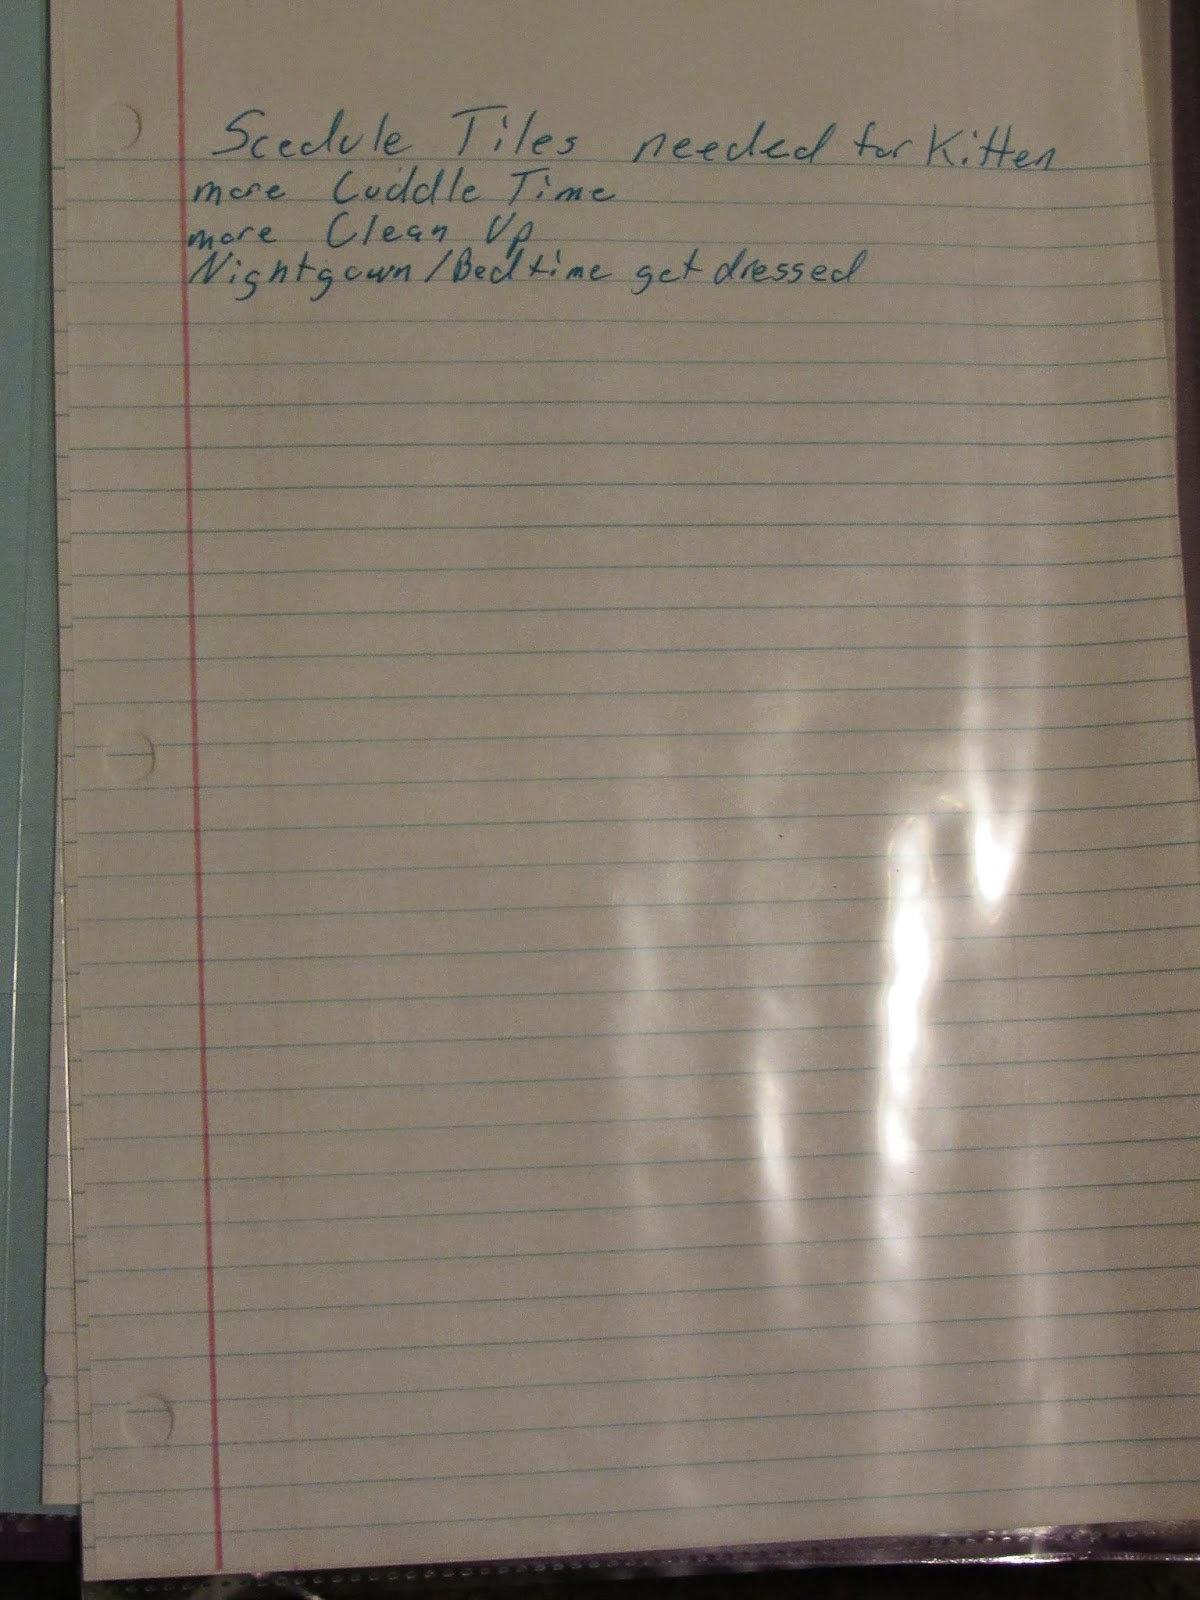 Scedule Tiles needed for Kitten
more Cuddle Time
more Clean Up
Nightgown/Bedtime get dressed